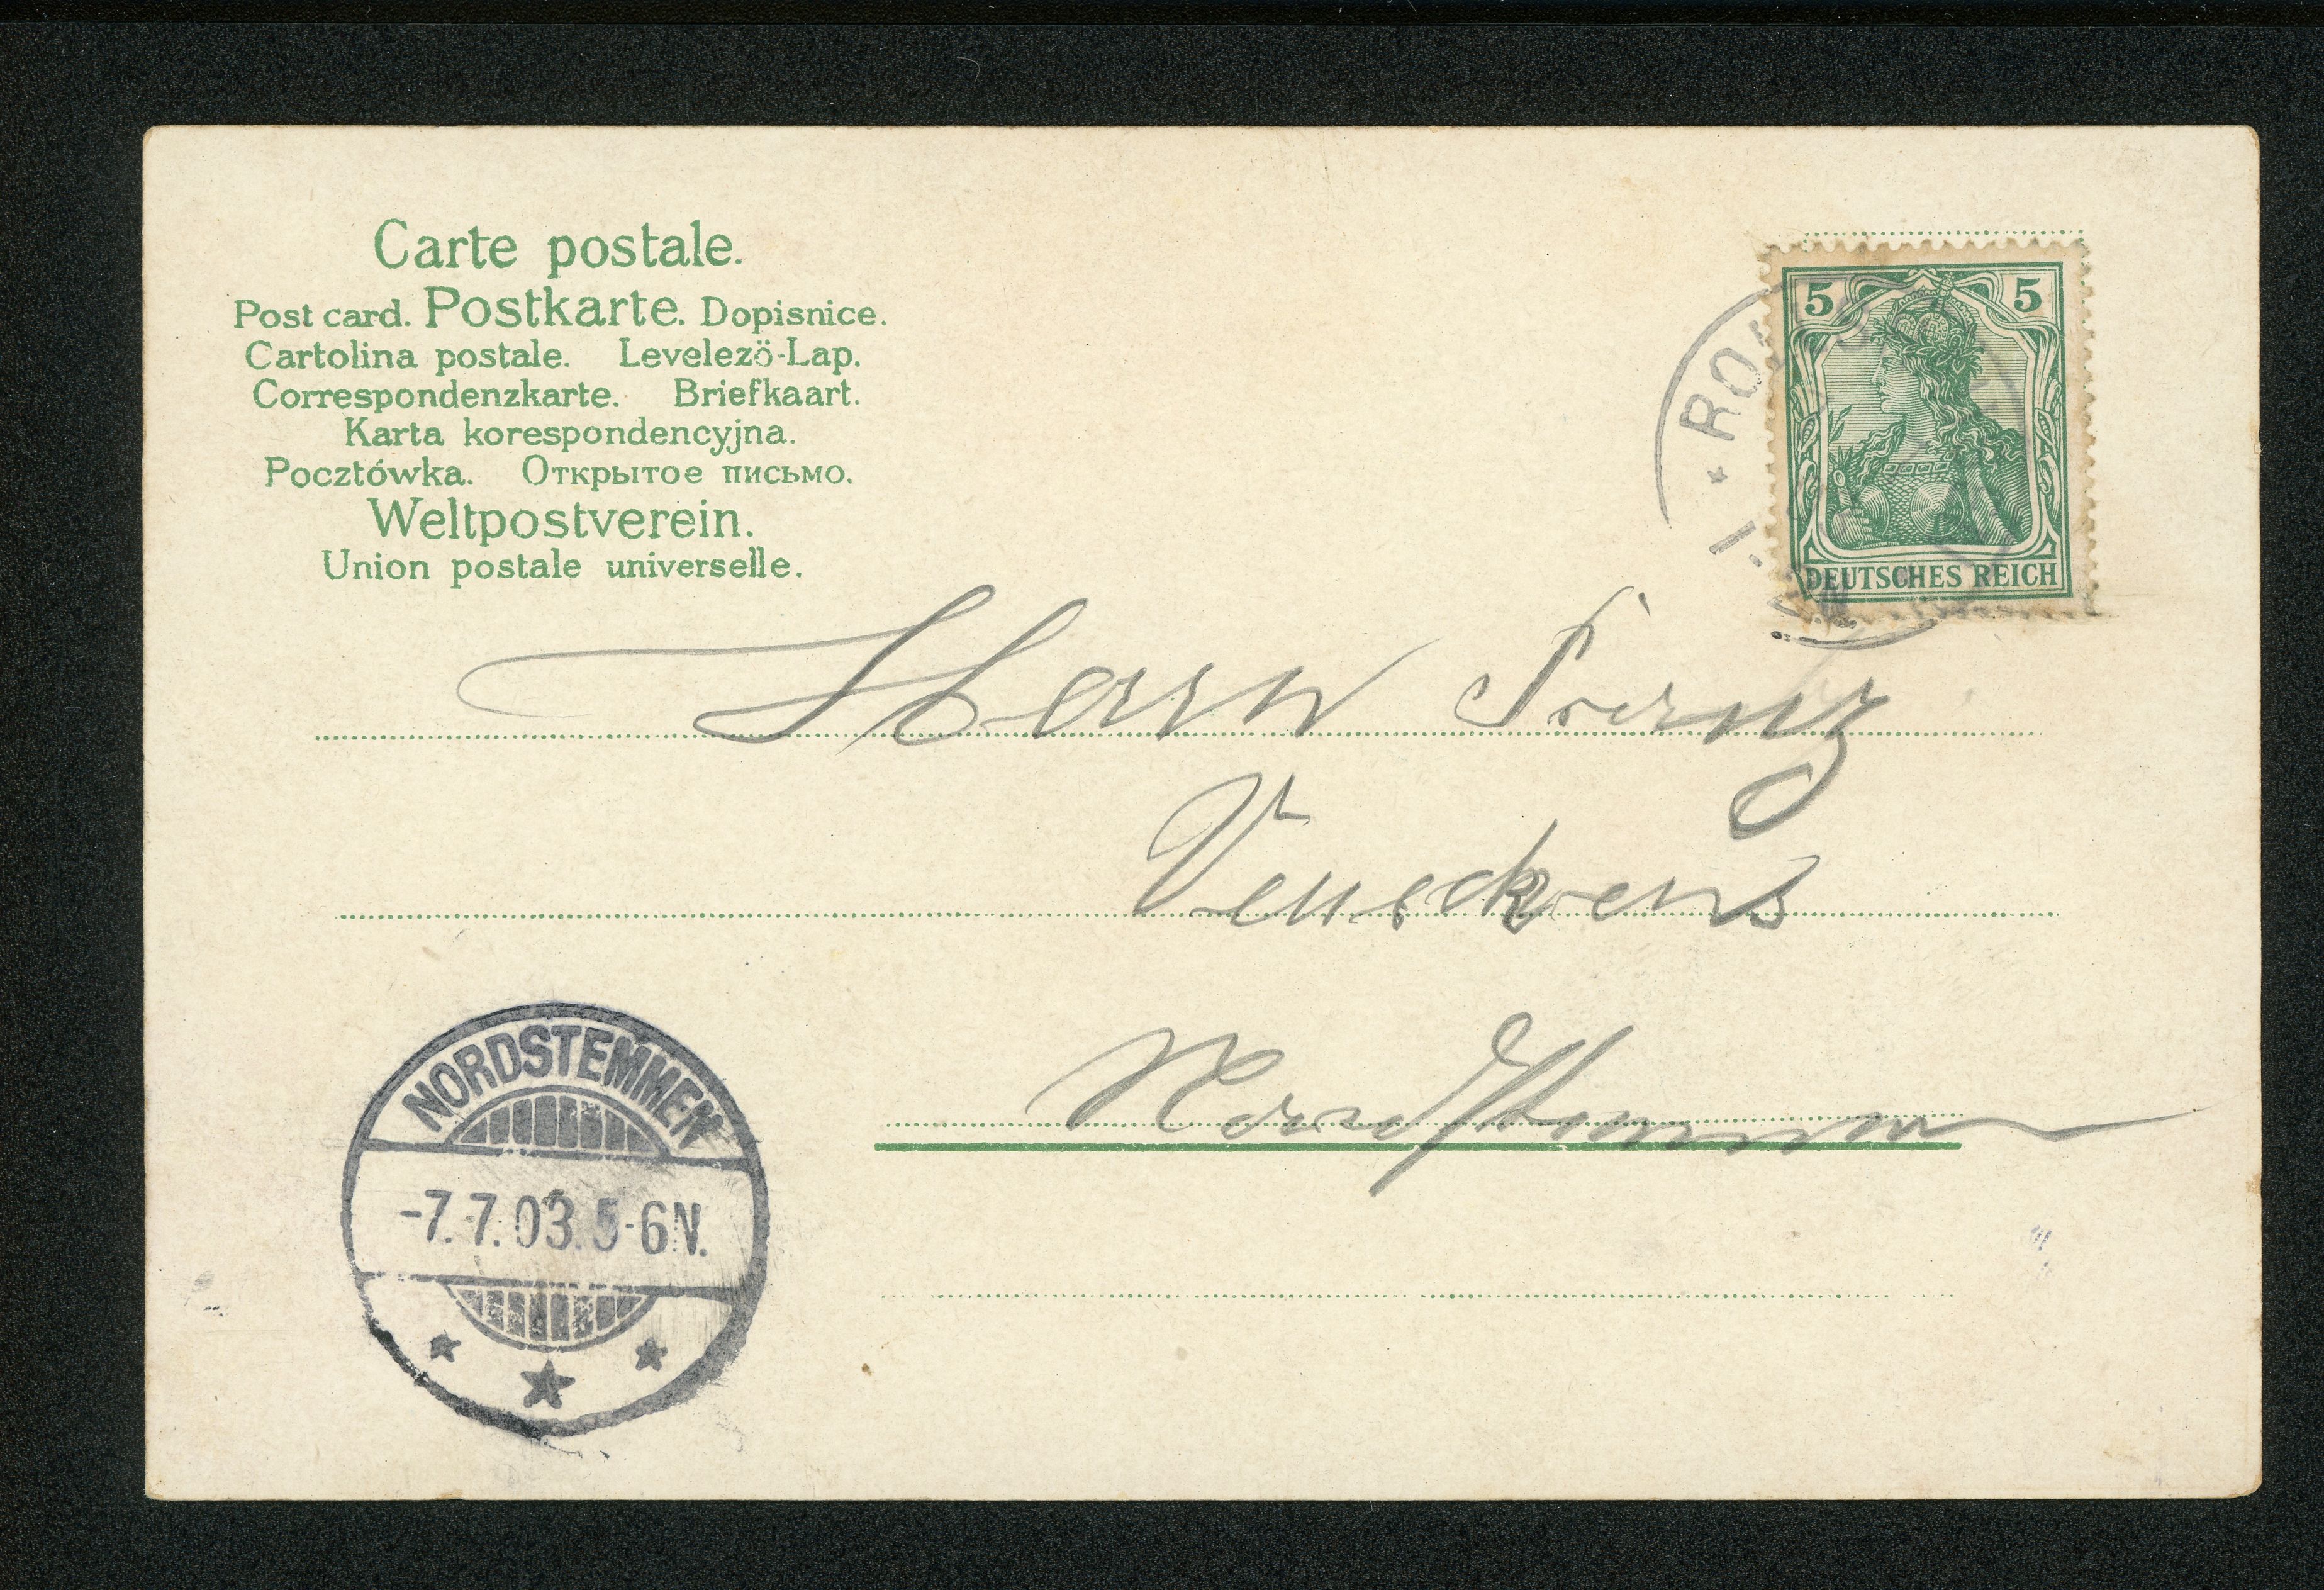 Carte postale.
Post card. Postkarte. Dopisnice.
Cartolina postale. Levelezö-Lap.
Correspondenzkarte. Briefkaart.
Karta korespondencyjna.
Pocztówka. Открытое письмо.
Weltpostverein.
Union postale universelle.
5 5
DEUTSCHES REICH
Herrn Franz
Nordstemmen
NORDSTEMMEN
-7.7.03.5-6N.